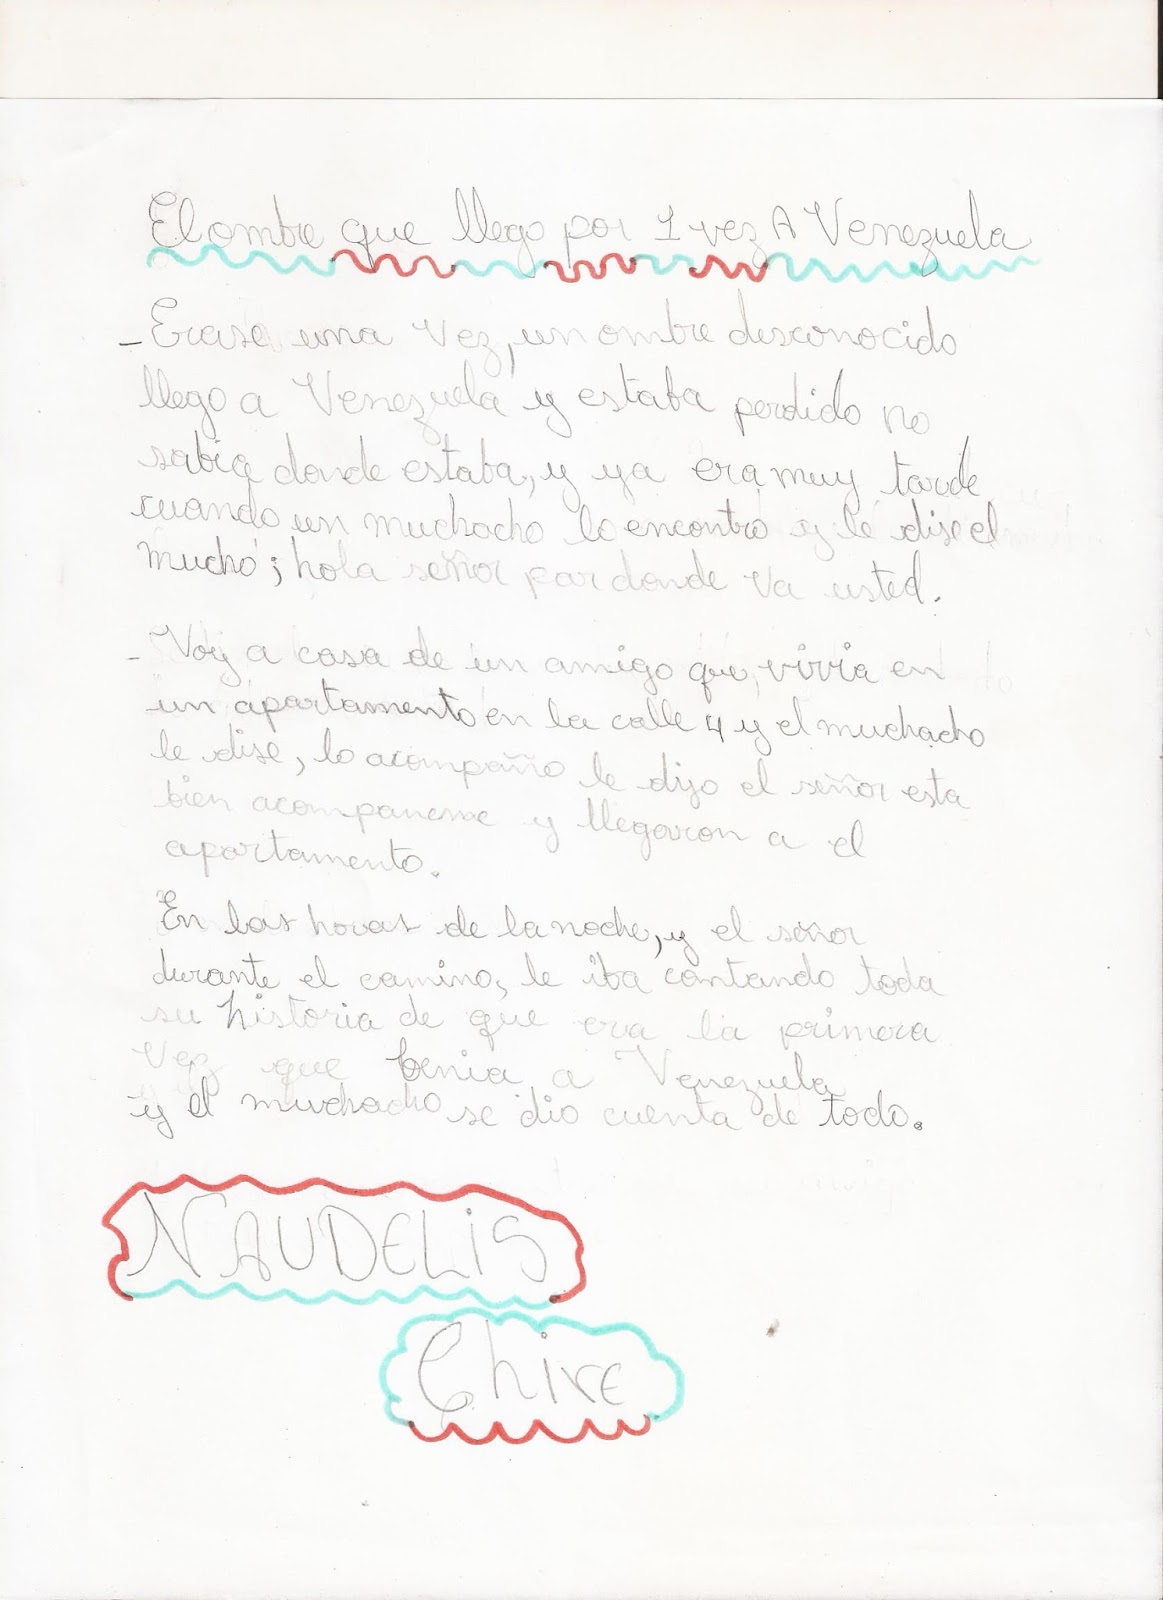 El ombre que llego por 1 vez A Venezuela
- Erase una vez, un ombre desconocido
llego a Venezuela y estaba perdido no
sabia donde estaba, y ya era muy tarde
cuando un muchacho lo encontro y le dise el
mucho; hola señor par donde va usted.
- Voy a casa de un amigo que, vivia en
un apartamento en la calle 4 y el muchacho
le dise, lo acompaño le dijo el señor esta
bien acompaneme y llegaron a el
apartamento.
En las horas de la noche, y el señor
durante el camino, le iba contando toda
su historia de que era la primera
vez que benia a Venezuela
y el muchacho se dio cuenta de todo.
NAUDELIS
Chire